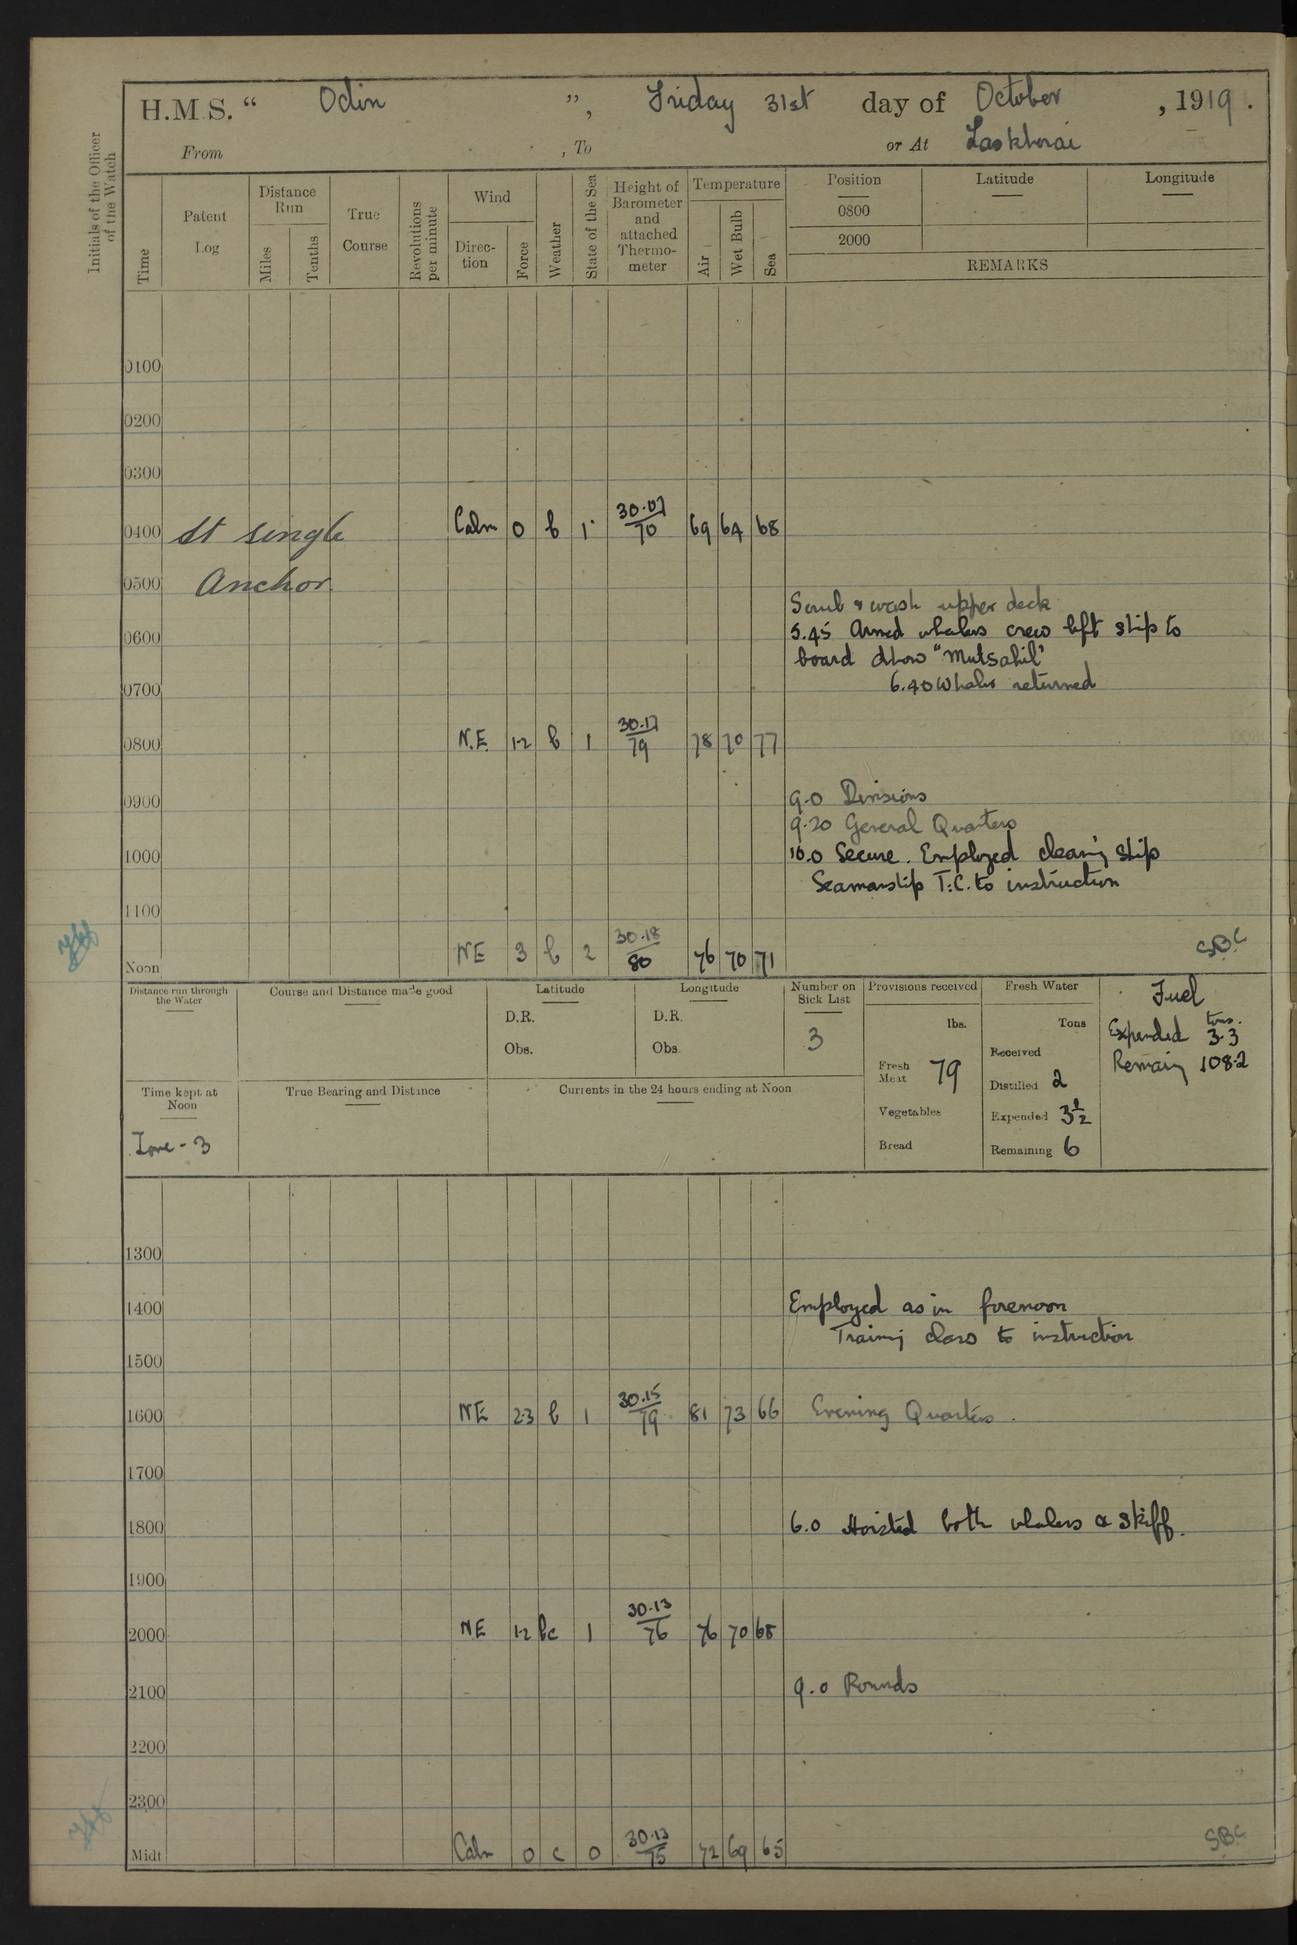 H.M.S. “ Odin ”, Friday 31st day of October, 1919.
From , To or At Laskhorai
Initials of the Officer of the Watch
Time
Patent Log
Distance Run
Miles
Tenths
True Course
Revolutions per minute
Wind
Direc-tion
Force
Weather
State of the Sea
Height of Barometer and attached Thermo-meter
Temperature
Air
Wet Bulb
Sea
Position
Latitude
Longitude
0800
2000
REMARKS
0100
0200
0300
0400 At single Calm 0 b 1 30.07/70 69 64 68
0500 Anchor.
Scrub & wash upper deck
0600 5.45 Armed whalers crew left ship to
board dhow "Mutsahil"
0700 6.40 Whaler returned
0800 N.E. 1-2 b 1 30.17/79 78 70 77
0900 9.0 Divisions
9.20 General Quarters
1000 10.0 Secure. Employed cleaning ship
Seamanship T.C. to instruction
1100
Noon NE 3 b 2 30.18/80 76 70 71 SBC
Distance run through the Water
Course and Distance made good
Latitude
Longitude
Number on Sick List
Provisions received
Fresh Water
Fuel
D.R. D.R. 3 lbs. Tons tons.
Expended 3.3
Obs. Obs. Received
Remaing 108.2
Fresh Meat 79 Distilled 2
Time kept at Noon
True Bearing and Distance
Currents in the 24 hours ending at Noon
Vegetables Expended 3½
Zone - 3 Bread Remaining 6
1300
1400 Employed as in forenoon
Training class to instruction
1500
1600 NE 2-3 b 1 30.15/79 81 73 66 Evening Quarters.
1700
1800 6.0 Hoisted both whalers & skiff.
1900
2000 NE 1-2 bc 1 30.13/76 76 70 68
2100 9.0 Rounds
2200
2300
Midt Calm 0 c 0 30.13/75 72 69 65 SBC